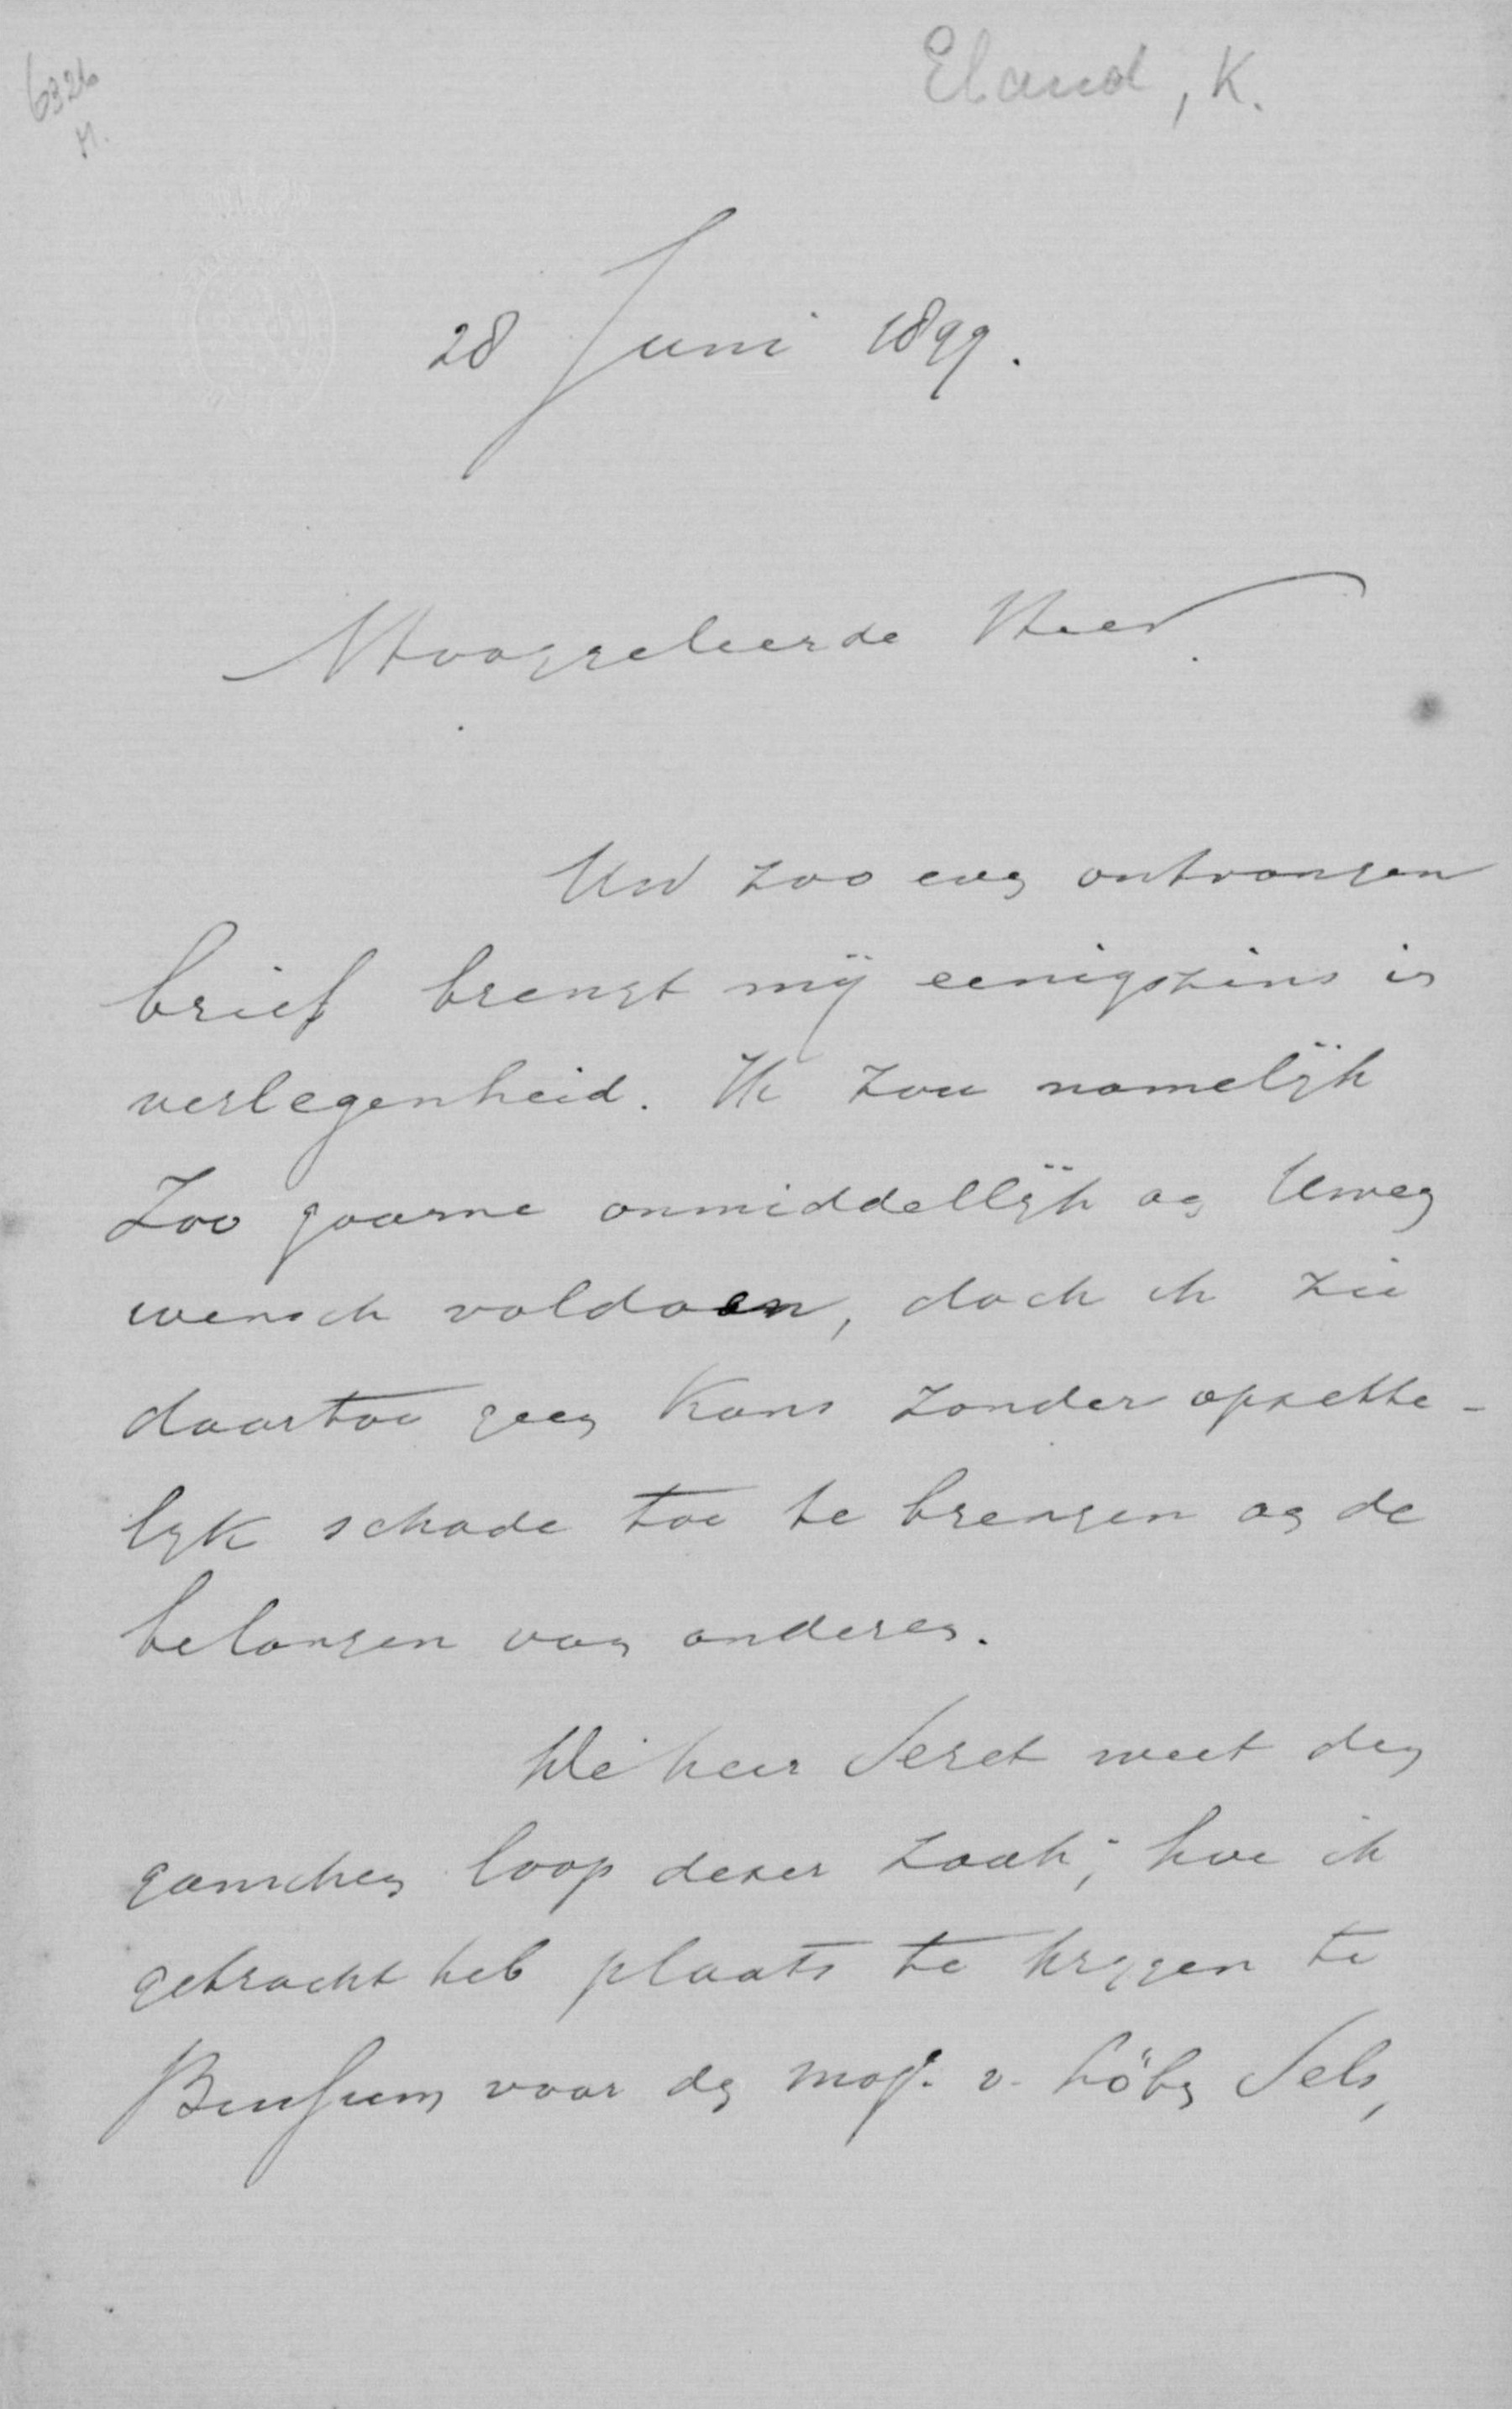 Eland, K.
632b
H.
28 Juni 1899.
Hooggeleerde Heer
Uw zoo even ontvangen
brief brengt mij eenigszins in
verlegenheid. Ik zou namelijk
Zoo gaarne onmiddellijk aan Uwen
wensch voldoen, doch ik zie
daartoe geen kans zonder opzette-
lijk schade toe te brengen aan de
belangen van anderen.
De heer Seret weet den
ganschen loop dezer zaak; hoe ik
getracht heb plaats te krijgen te
Bussum voor de maj. v. Löben Sels,